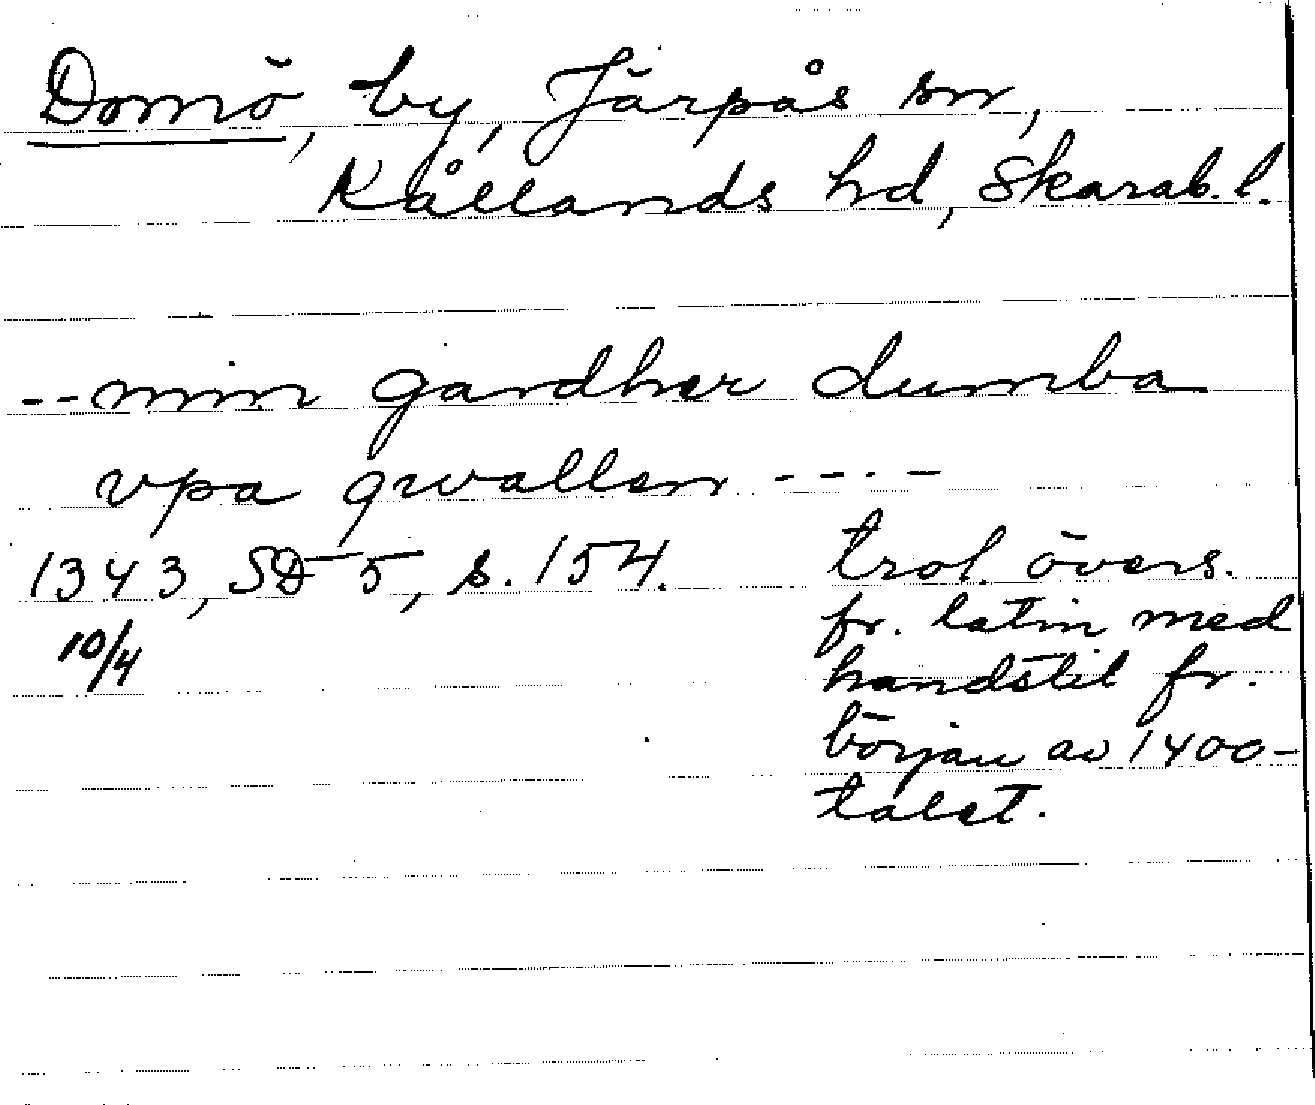 Domö, by, Järpås sn,
Kållands hd, Skarab. l.
--min gardher dumba
vpa qwallen ----
1343, SD 5, s. 154.
10/4
trol. övers.
fr. latin med
handstil fr.
början av 1400-
talet.